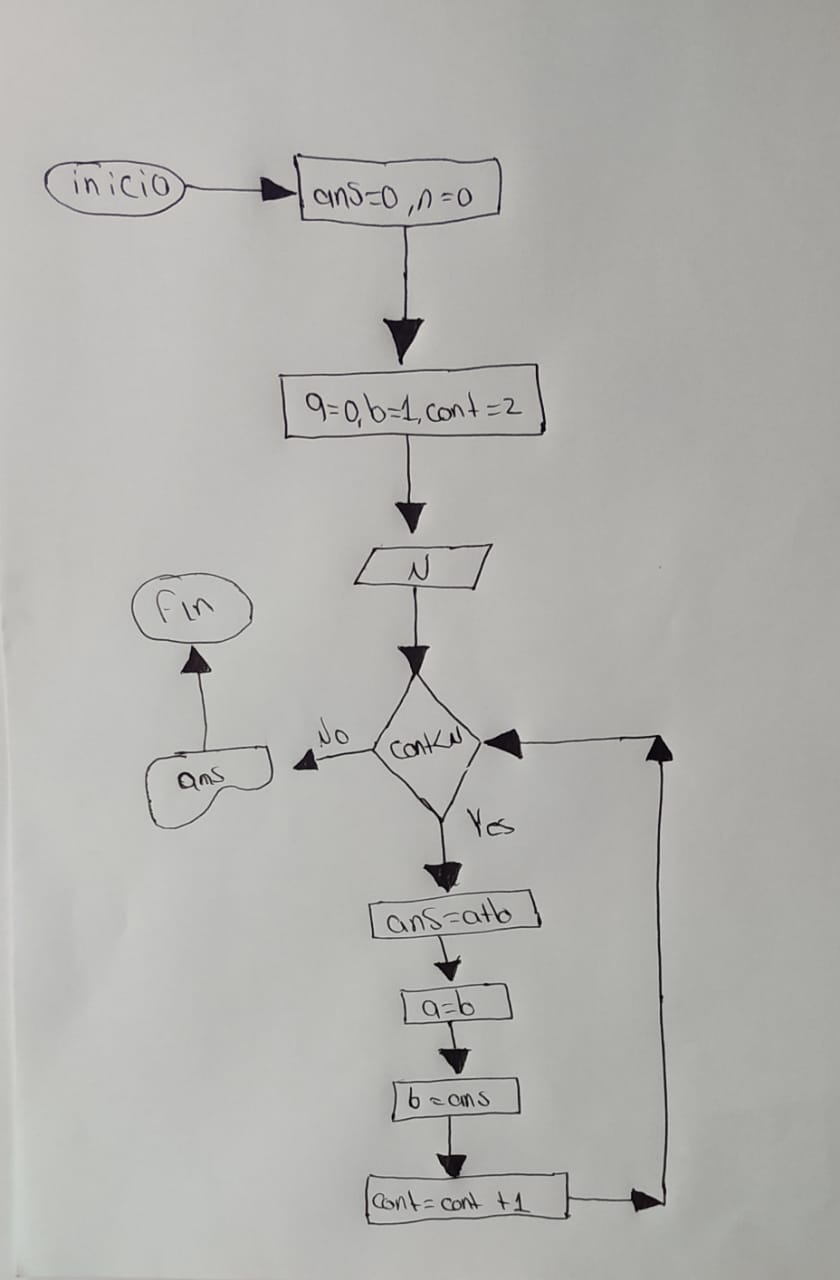 inicio
ans=0,n=0
a=0,b=1,cont=2
N
cont<N
No
ans
Fin
Yes
ans=a+b
a=b
b=ans
cont=cont+1